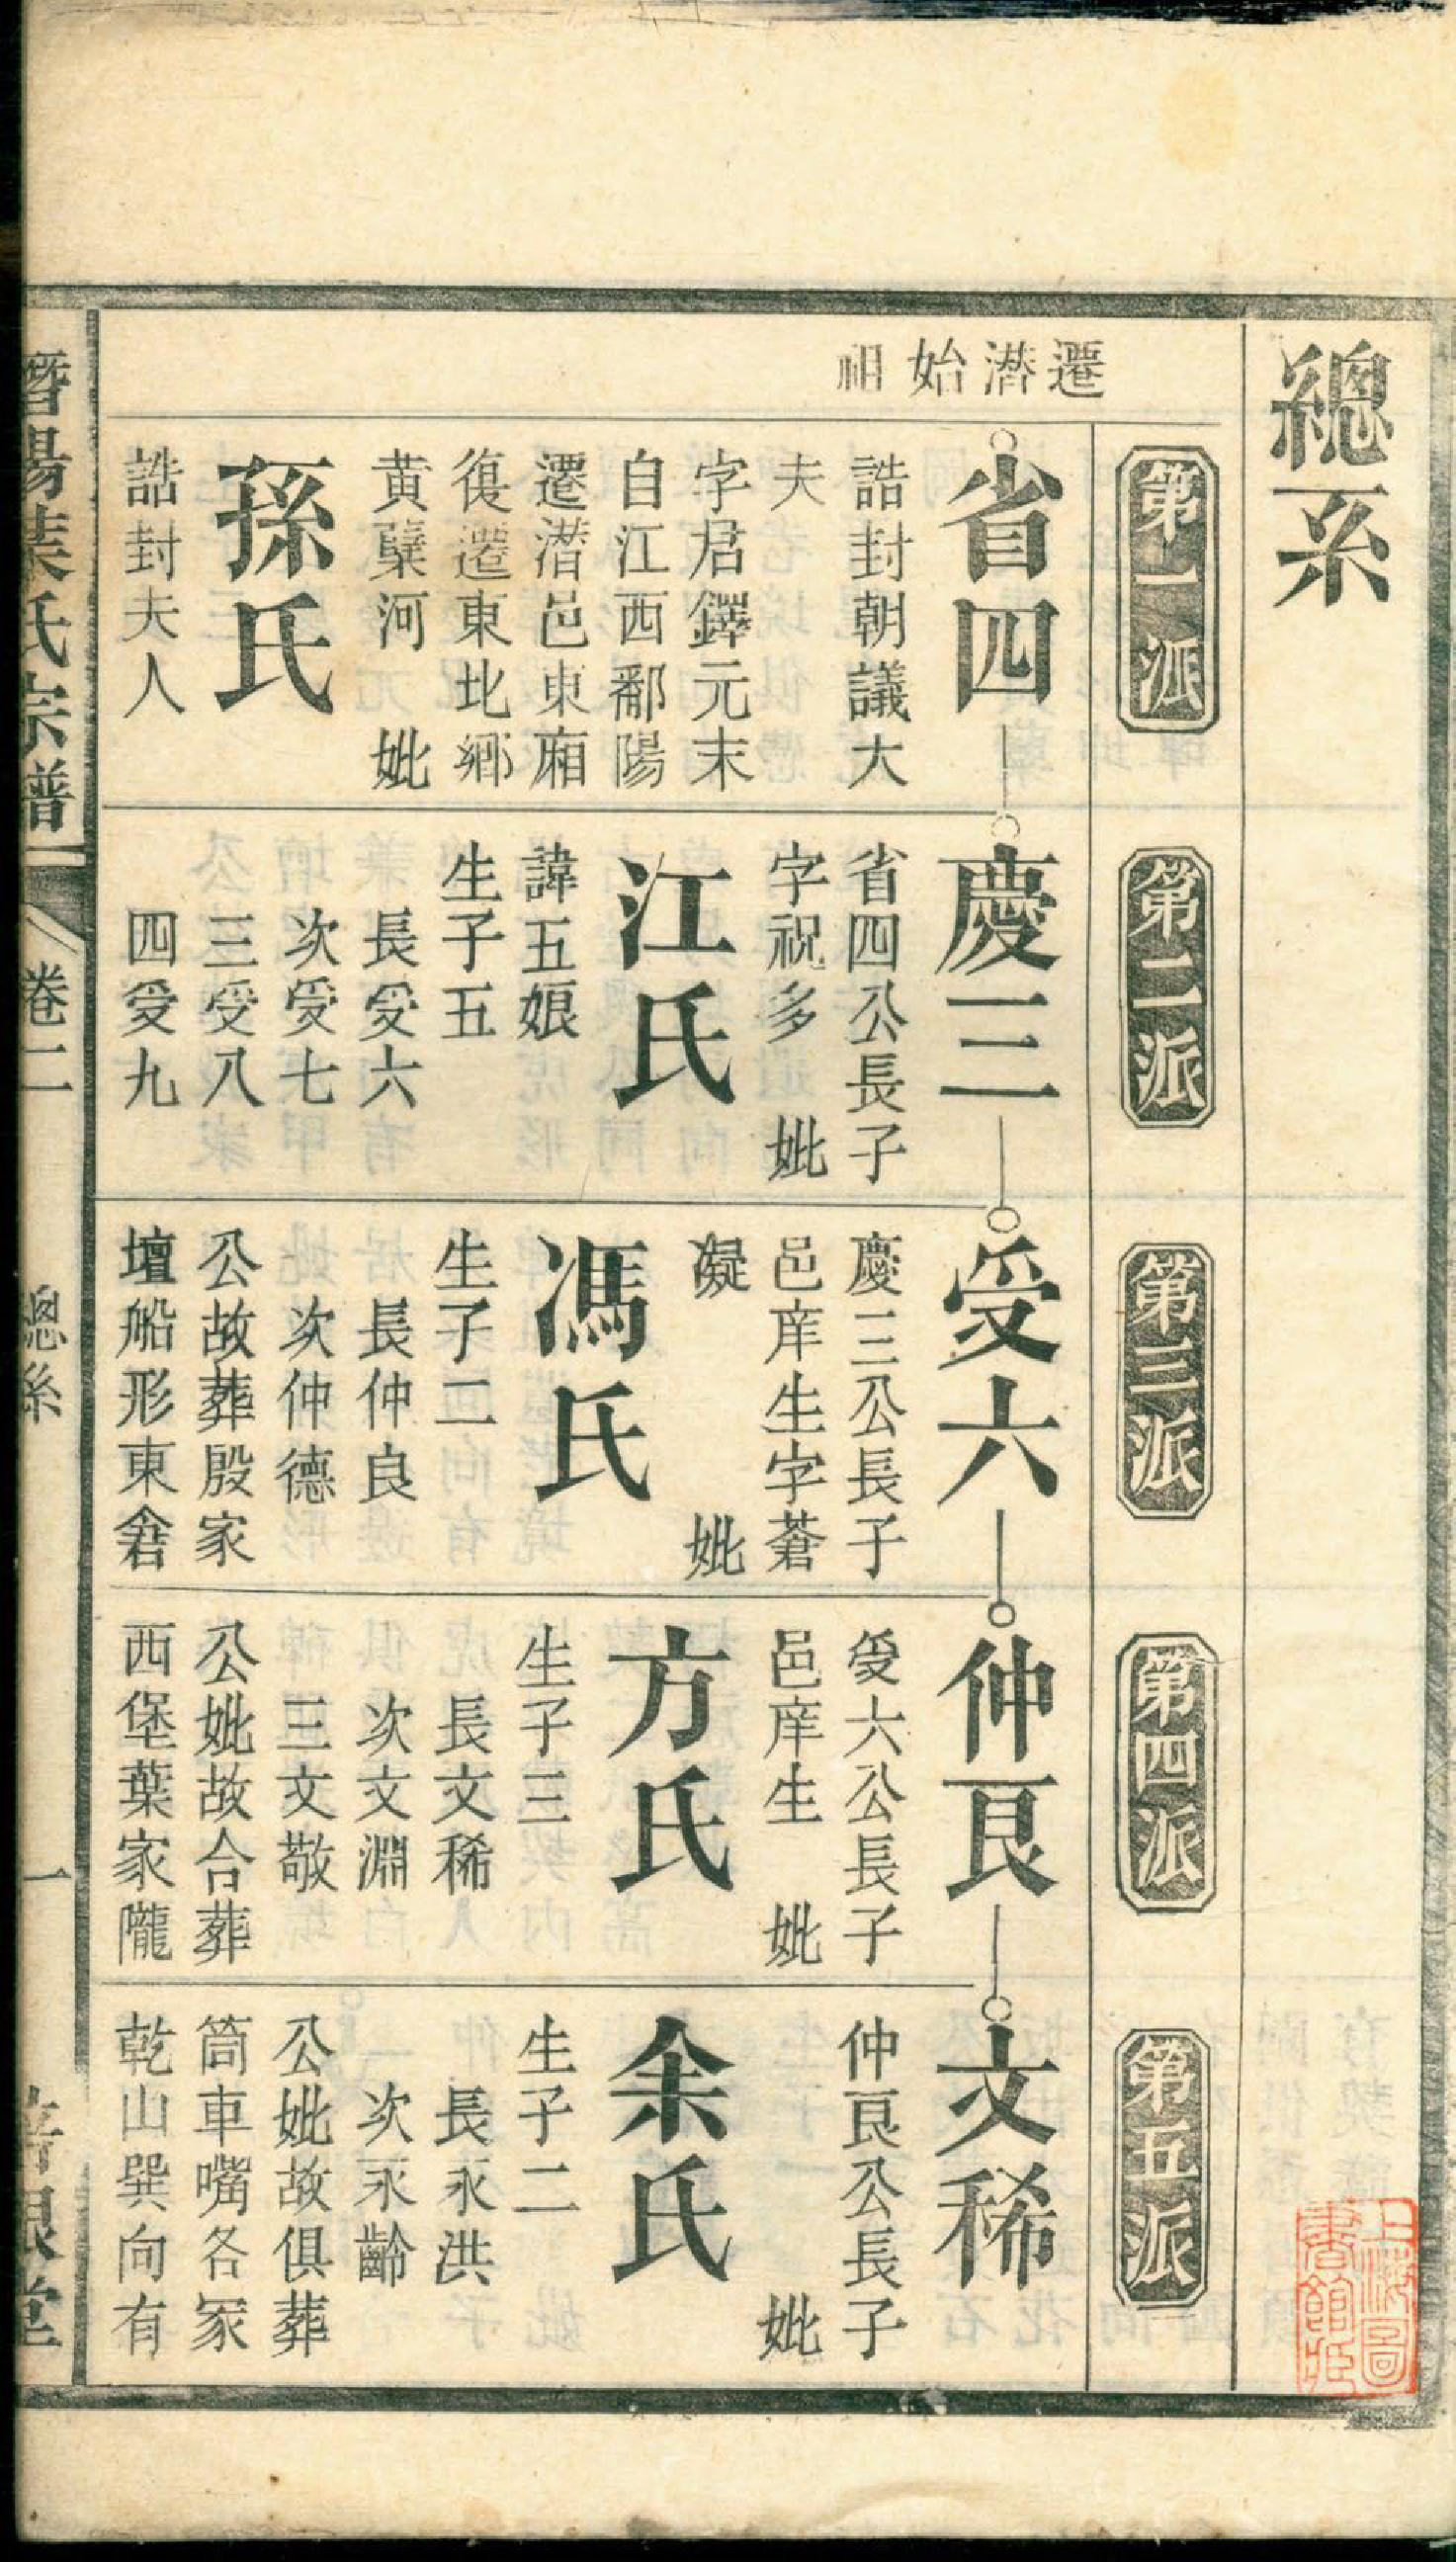 總系
第一派
第二派
第三派
第四派
第五派
遷潛始祖
省四
誥封朝議大
夫
字君鐸元末
自江西鄱陽
遷潛邑東廂
復遷東北鄉
黃蘗河 妣
孫氏
誥封夫人
慶三
省四公長子
字祝多 妣
江氏
諱五娘
生子五
長受六
次受七
三受八
四受九
受六
慶三公長子
邑庠生字蒼
凝 妣
馮氏
生子二
長仲良
次仲德
公故葬殷家
壇船形東畬
仲良
受六公長子
邑庠生 妣
方氏
生子三
長文稀
次文淵
三文敬
公妣故合葬
西堡葉家隴
文稀
仲良公長子
妣
余氏
生子二
長永洪
次永齡
公妣故俱葬
筒車嘴各冢
乾山巽向有
葉氏宗譜
卷二
總系
一
上海圖書館藏